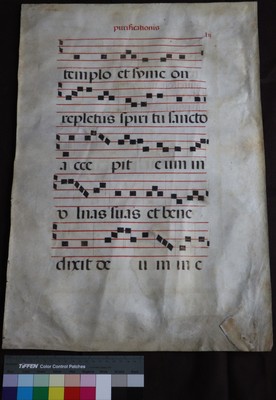 purificationis
templo et syme on
repletus spiri tu sancto
a cce pit e um in
v lnas suas et bene
dixit de u m in e
TIFFEN Color Control Patches